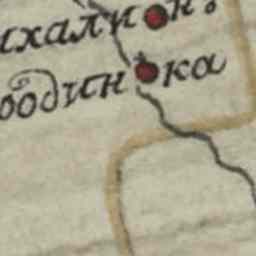 ихалион
оодинка